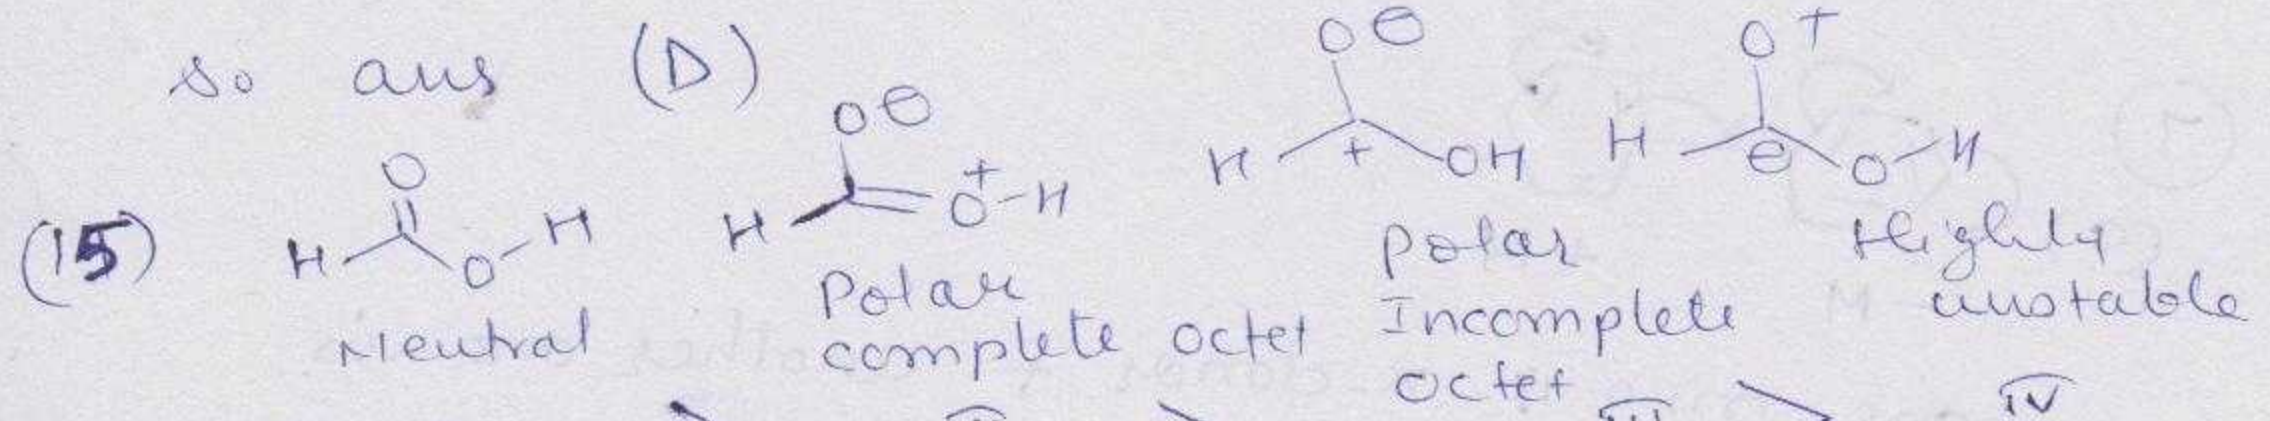 so ans (D)
(15)
O
H O H
Neutral
O⊖
H O+-H
Polar
complete octet
O⊖
H + OH
polar
Incomplete
octet
O+
H ⊖ O H
Highly
unstable
> II > III > IV